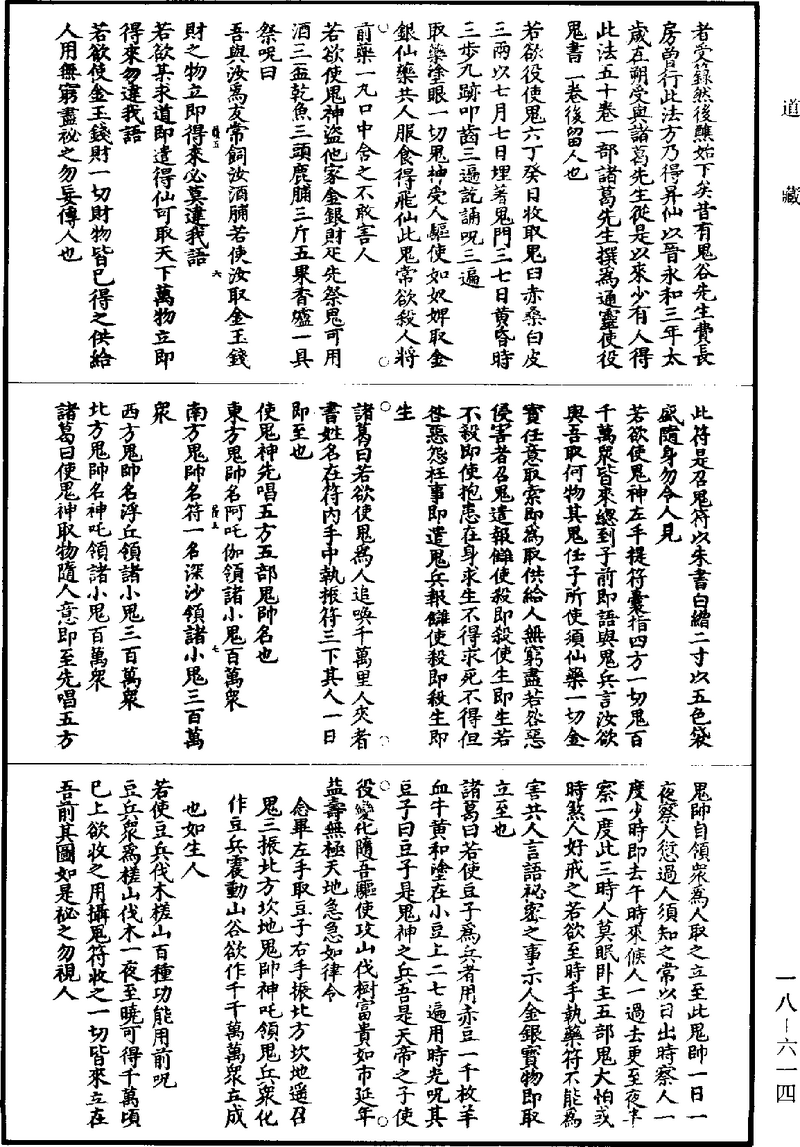 道藏
者受籙然後醮始下矣昔有鬼谷先生費長
房曾行此法方乃得昇仙以晉永和三年太
歲在朔受與諸葛先生從是以來少有人得
此法五十卷一部諸葛先生撰為通靈使役
鬼書一卷後留人也
若欲役使鬼六丁癸日收取鬼臼赤桑白皮
三兩以七月七日埋著鬼門三七日黃昏時
三步九跡叩齒三遍訖誦呪三遍
取藥塗眼一切鬼神受人驅使如奴婢取金
銀仙藥共人服食得飛仙此鬼常欲殺人將
前藥一丸口中含之不敢害人
若欲使鬼神盜他家金銀財疋先祭鬼可用
酒三盃乾魚三頭鹿脯三斤五果香爐一具
祭呪曰
吾與汝為友常飼汝酒脯若使汝取金玉錢
財之物立即得來必莫違我語
若欲某求道即遣得仙可取天下萬物立即
得來勿違我語
若欲使金玉錢財一切財物皆已得之供給
人用無窮盡祕之勿妄傳人也
此符是召鬼符以朱書白繒二寸以五色袋
盛隨身勿令人見
若欲使鬼神左手提符囊指四方一切鬼百
千萬衆皆來總到子前即語與鬼兵言汝欲
與吾取何物其鬼任子所使須仙藥一切金
寶任意取索即為取供給人無窮盡若咎惡
侵害者召鬼遣報讎使殺即殺使生即生若
不殺即使抱患在身求生不得求死不得但
咎惡怨枉事即遣鬼兵報讎使殺即殺生即
生
諸葛曰若欲使鬼為人追喚千萬里人來者
書姓名在符內手中執振符三下其人一日
即至也
使鬼神先唱五方五部鬼帥名也
東方鬼帥名阿吒伽領諸小鬼百萬衆
南方鬼帥名符一名深沙領諸小鬼三百萬
衆
西方鬼帥名浮丘領諸小鬼三百萬衆
北方鬼帥名神吒領諸小鬼百萬衆
諸葛曰使鬼神取物隨人意即至先唱五方
鬼帥自領衆為人取之立至此鬼帥一日一
夜察人愆過人須知之常以日出時察人一
度少時即去午時來候人一過去更至夜半
察一度此三時人莫眠卧主五部鬼大怕或
時煞人好戒之若欲至時手執藥符不能為
害共人言語祕密之事示人金銀寶物即取
立至也
諸葛曰若使豆子為兵者用赤豆一千枚羊
血牛黃和塗在小豆上二七遍用時先呪其
豆子曰豆子是鬼神之兵吾是天帝之子使
役變化隨吾驅使攻山伐樹富貴如市延年
益壽無極天地急急如律令
念畢左手取豆子右手振北方坎地遥召
鬼三振北方坎地鬼帥神吒領鬼兵衆化
作豆兵震動山谷欲作千千萬萬衆立成
也如生人
若使豆兵伐木槎山百種功能用前呪
豆兵衆為槎山伐木一夜至曉可得千萬頃
已上欲收之用攝鬼符收之一切皆來立在
吾前其圖如是祕之勿視人
一八—六一四